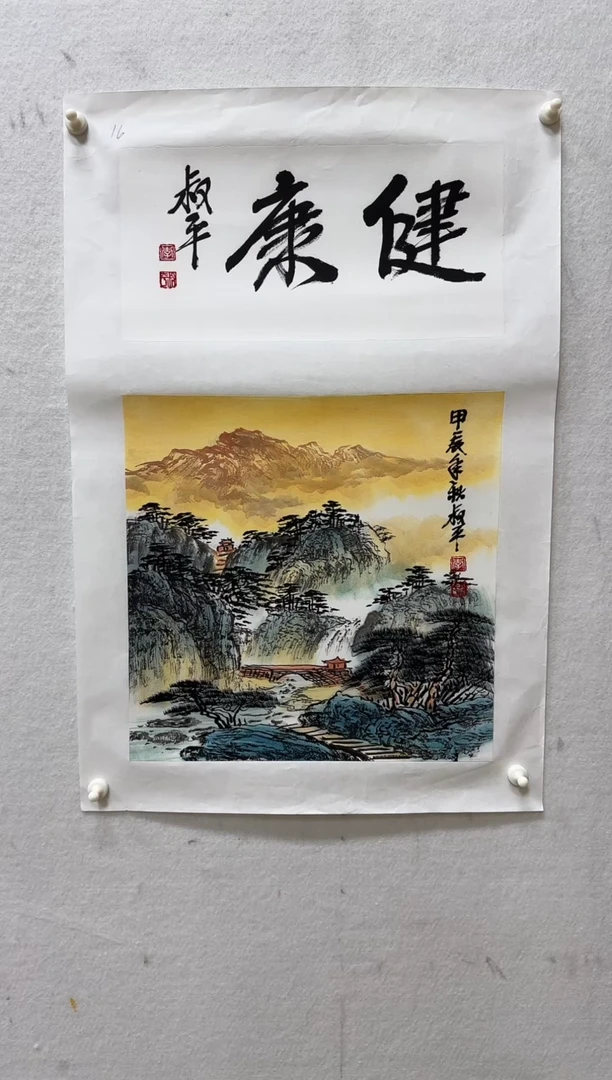 16
健康
叔平
甲辰年秋叔平